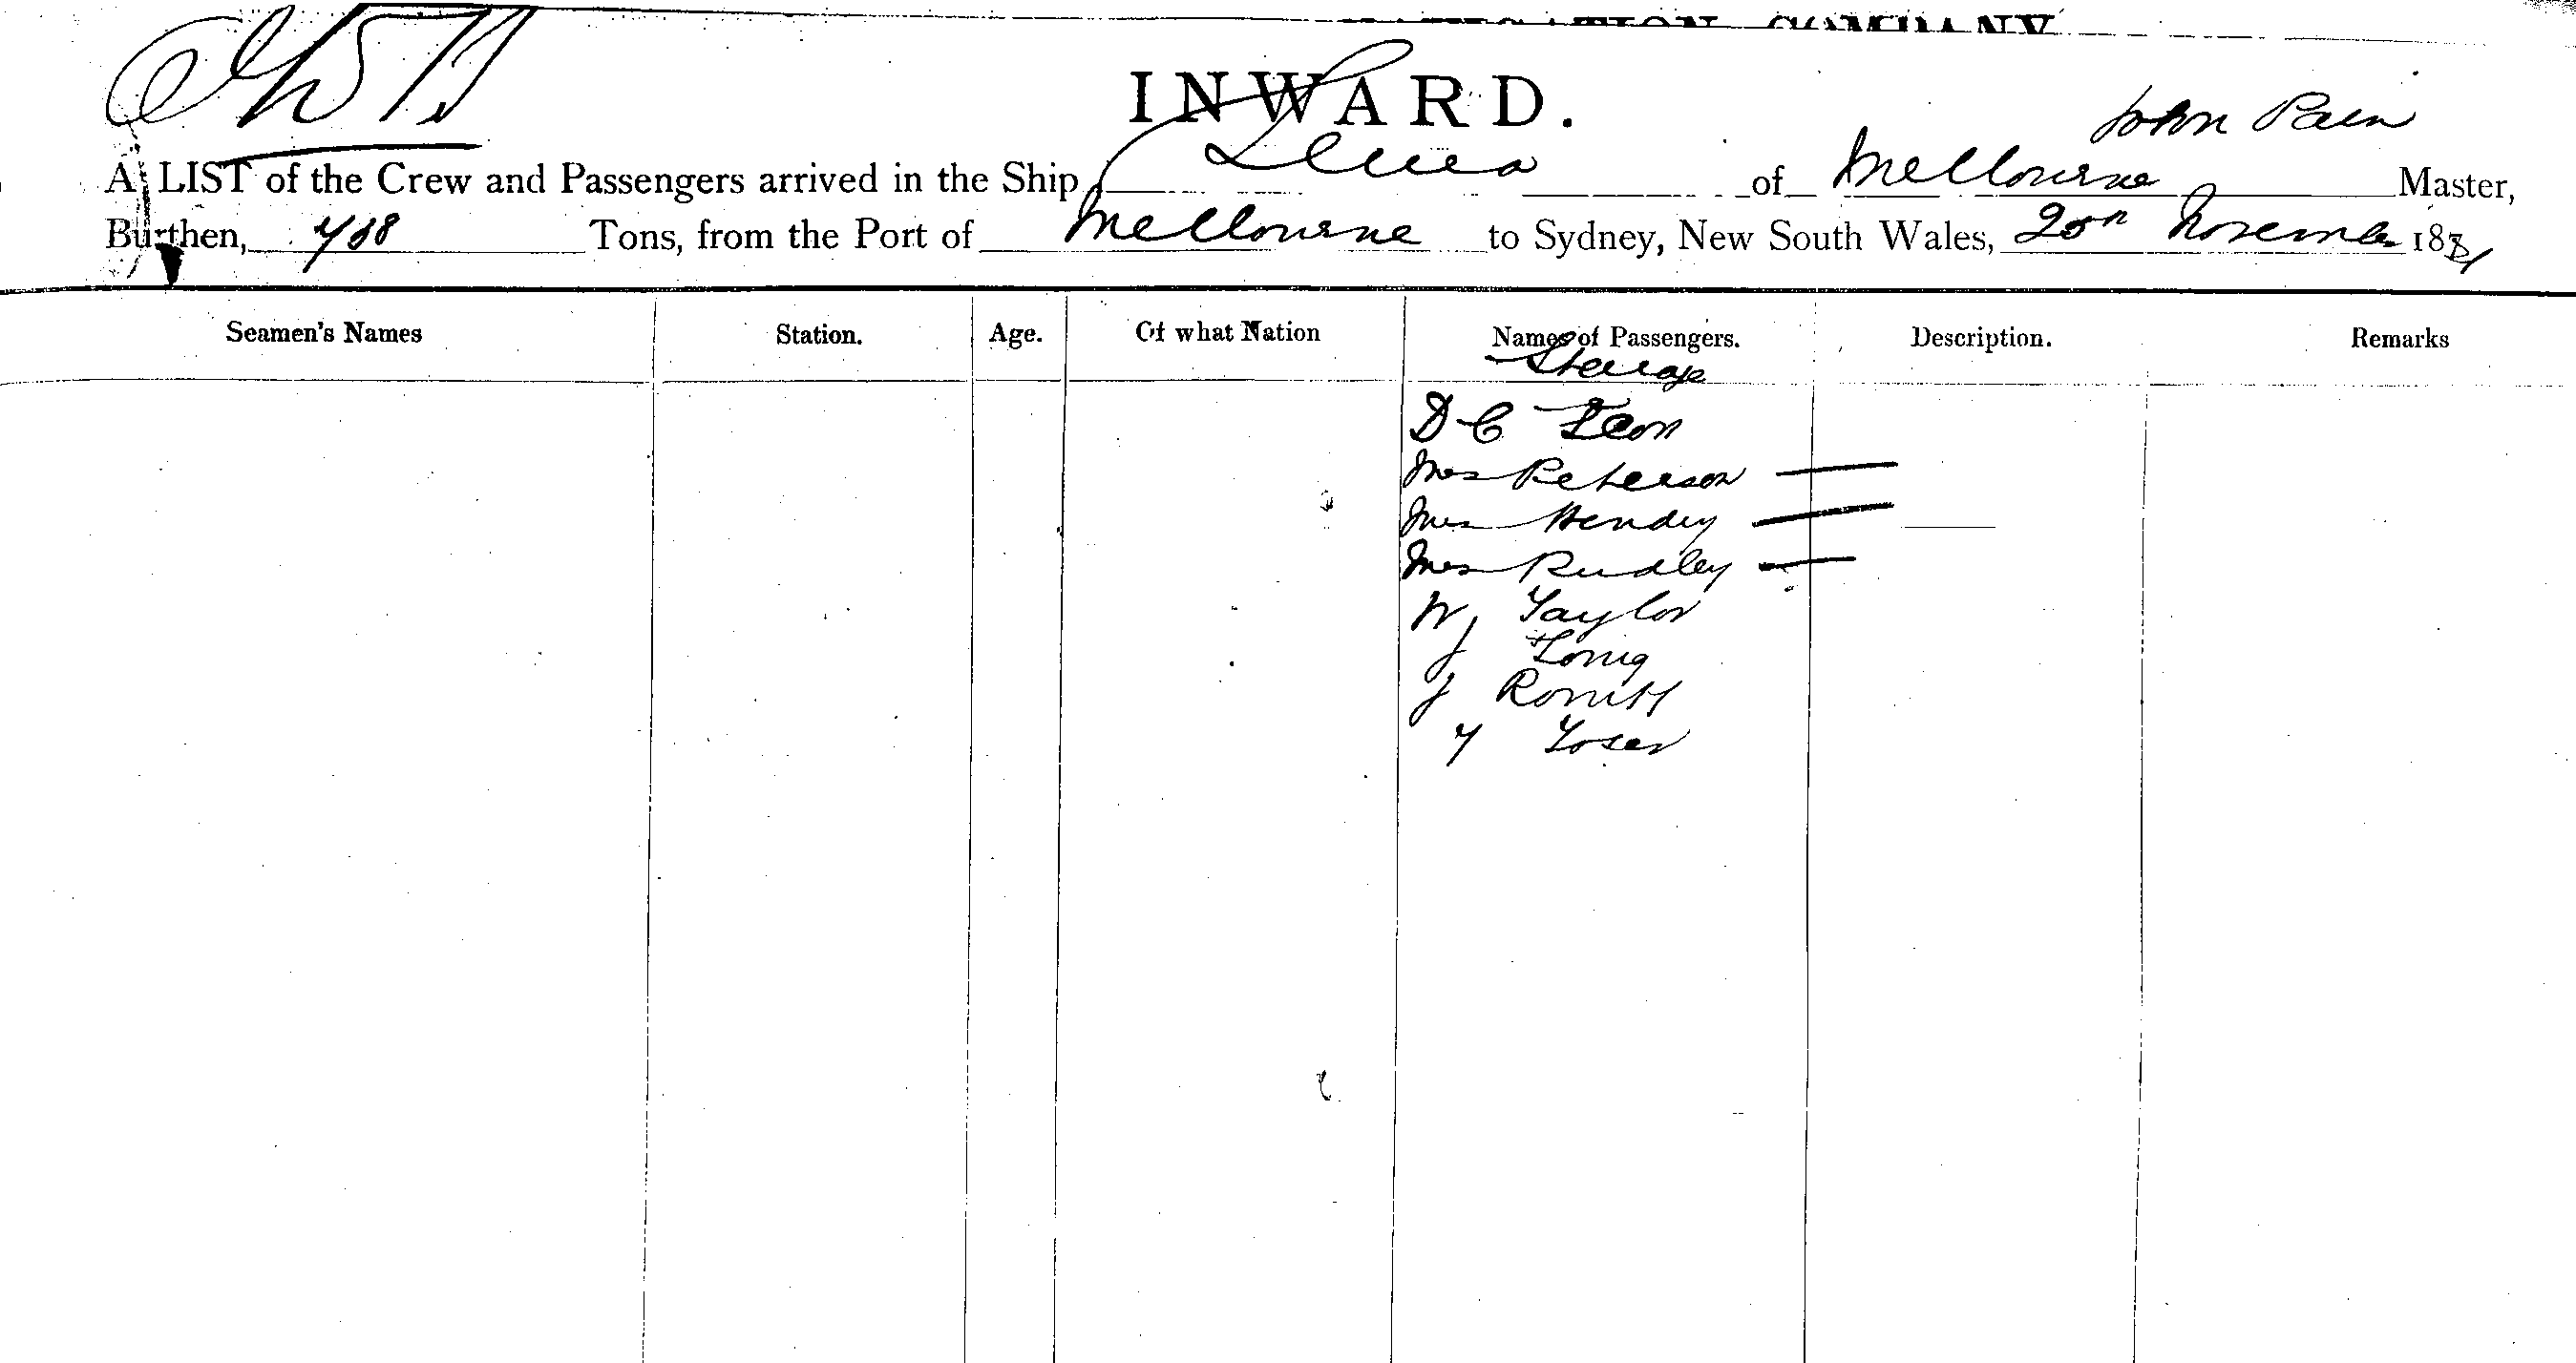 INWARD.
John Pain
A LIST of the Crew and Passengers arrived in the Ship of Melbourne Master,
Burthen, 708 Tons, from the Port of Melbourne to Sydney, New South Wales, 20th November 1881
Seamen's Names Station. Age. Of what Nation Names of Passengers. Description. Remarks
Steerage
D C Leon
Mrs Peterson
Mrs Hendy
Mrs Rudley
W Taylor
J
J